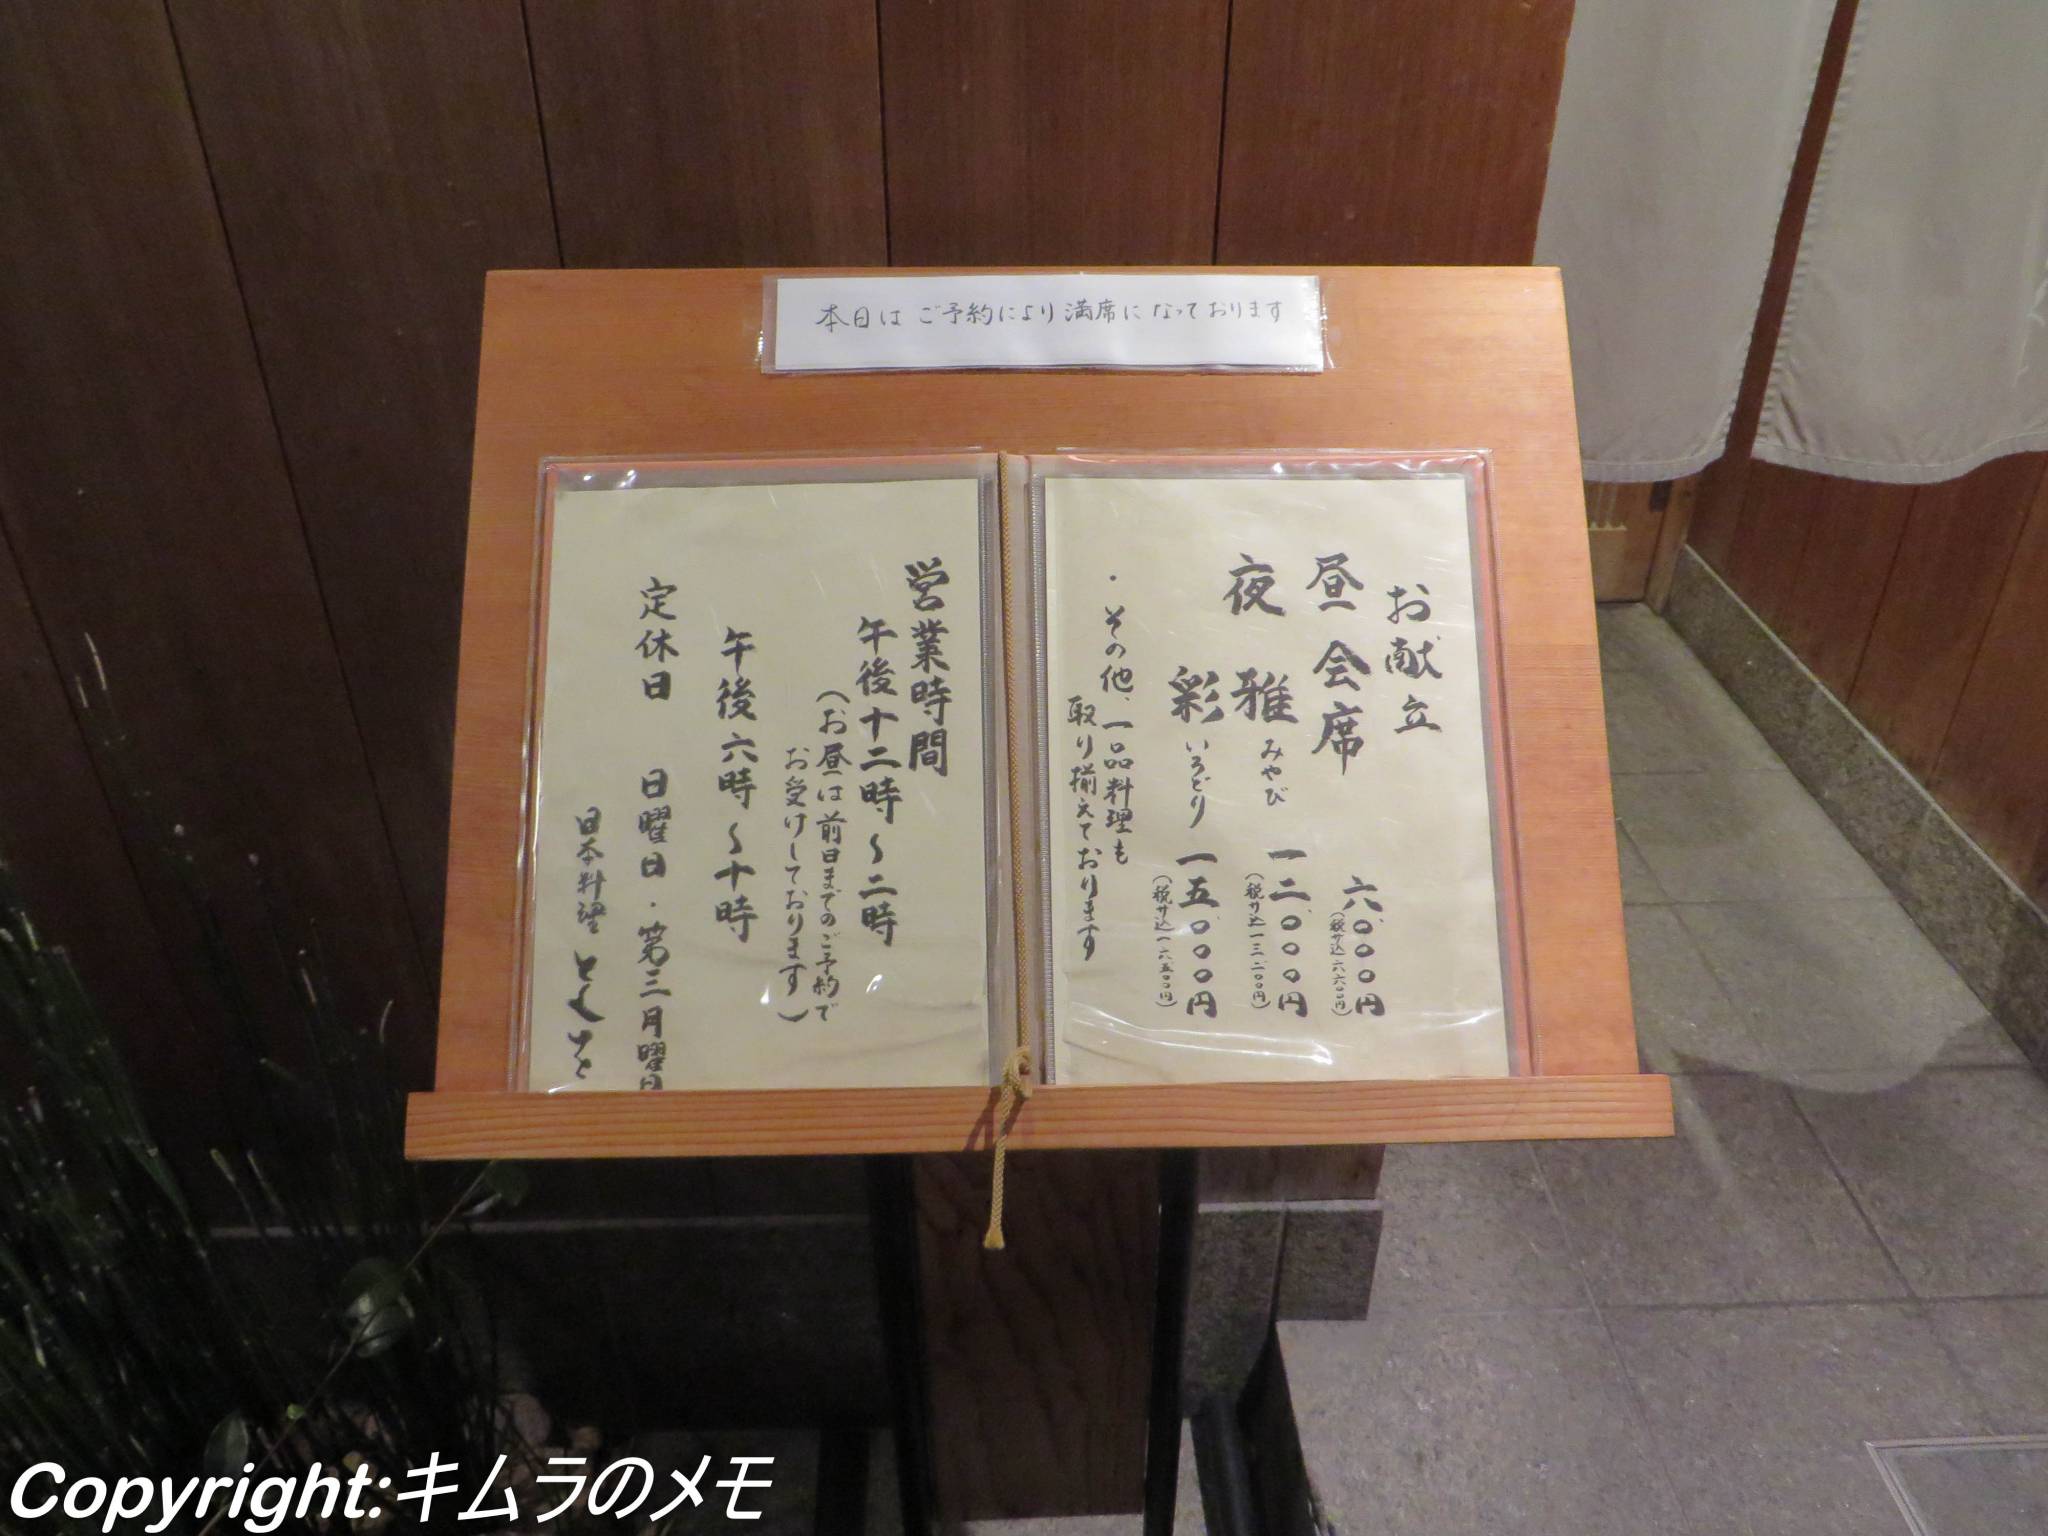 本日はご予約により満席になっております
お献立
昼 会席 六、〇〇〇円
(税サ込六六〇〇円)
夜 雅 みやび 一二、〇〇〇円
(税サ込一三二〇〇円)
彩 いろどり 一五、〇〇〇円
(税サ込一六五〇〇円)
・その他、一品料理も
取り揃えております
営業時間
午後十二時～二時
(お昼は前日までのご予約で
お受けしております)
午後六時～十時
定休日 日曜日・第三月曜日
日本料理 とくを
Copyright:キムラのメモ